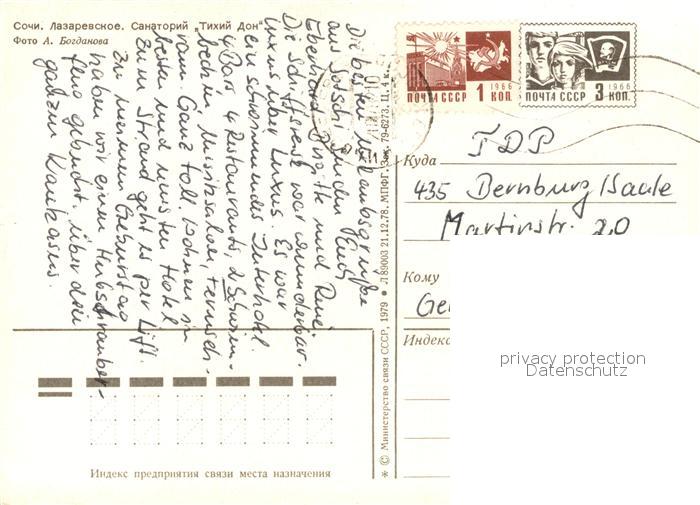 Сочи. Лазаревское. Санаторий „Тихий Дон“
Фото А. Богданова
Die besten Urlaubsgrüße
aus Sotschi senden Euch
Eberhard, Brigitte und René.
Die Schiffsreise war wunderbar.
Luxus über Luxus. Es war
ein schwimmendes Interhotel.
4 Bars, 4 Restaurants, 2 Schwimm-
becken, Musiksalon, Fernseh-
raum. Ganz toll. Wohnen im
besten und neusten Hotel
zum Strand geht es per Lift.
Zu meinem Geburtstag
haben wir einen Hubschrauber-
flug gebucht, über den
ganzen Kaukasus.
ПОЧТА СССР 1966 1 КОП.
ПОЧТА СССР 1966 3 КОП.
© Министерство связи СССР, 1979 ● Л 89003 21.12.78. МПФГ. Зак. 79-6273. Ц. 4 к.
Куда
TDP
435 Bernburg/Saale
Martinstr. 20
Кому
Индекс
privacy protection
Datenschutz
Индекс предприятия связи места назначения